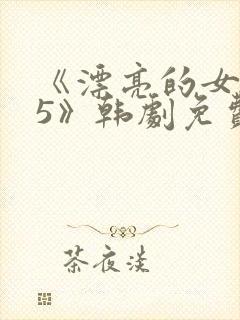 《漂亮的女
5》韩剧免费
茶夜淡